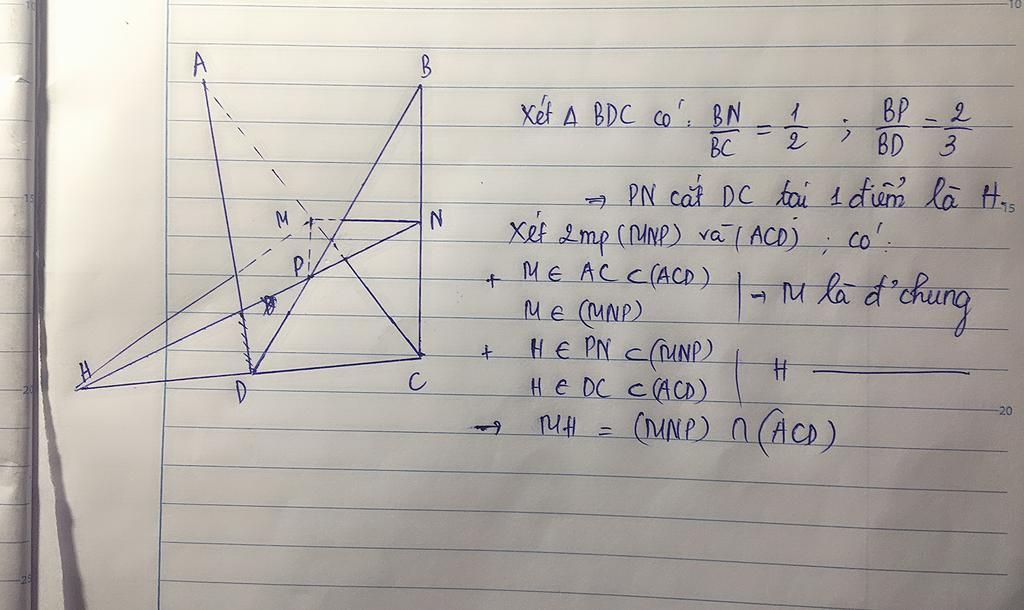 A
B
M
N
P
H
D
C
Xét Δ BDC có: BN/BC = 1/2 ; BP/BD = 2/3
⇒ PN cắt DC tại 1 điểm là H.
Xét 2mp (MNP) và (ACD) ; có:
+ M ∈ AC ⊂ (ACD)
M ∈ (MNP)
→ M là đ' chung
+ H ∈ PN ⊂ (MNP)
H ∈ DC ⊂ (ACD)
H ————
→ MH = (MNP) ∩ (ACD)
10
10
15
15
20
20
25